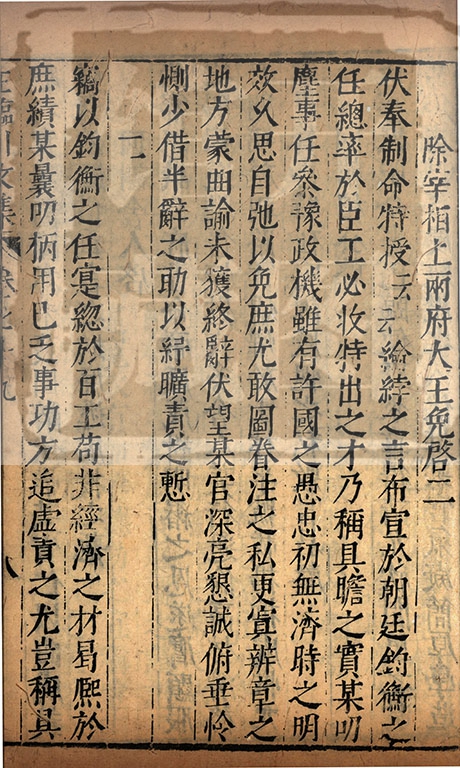 除宰相上兩府大王免啓二
伏奉制命特授云云綸綍之言布宣於朝廷鈞衡之
任總率於臣工必收特出之才乃稱具瞻之實某叨
塵事任參豫政機雖有許國之愚忠初無濟時之明
效久思自弛以免庶尤敢圖眷注之私更寘辨章之
地方蒙曲諭未獲終辭伏望某官深亮懇誠俯垂怜
惻少借半辭之助以紓曠責之慙
二
竊以鈞衡之任寔緫於百工苟非經濟之材曷熙於
庶績某曩叨柄用已乏事功方追虛責之尤豈稱具
王臨川文集卷七十九
八